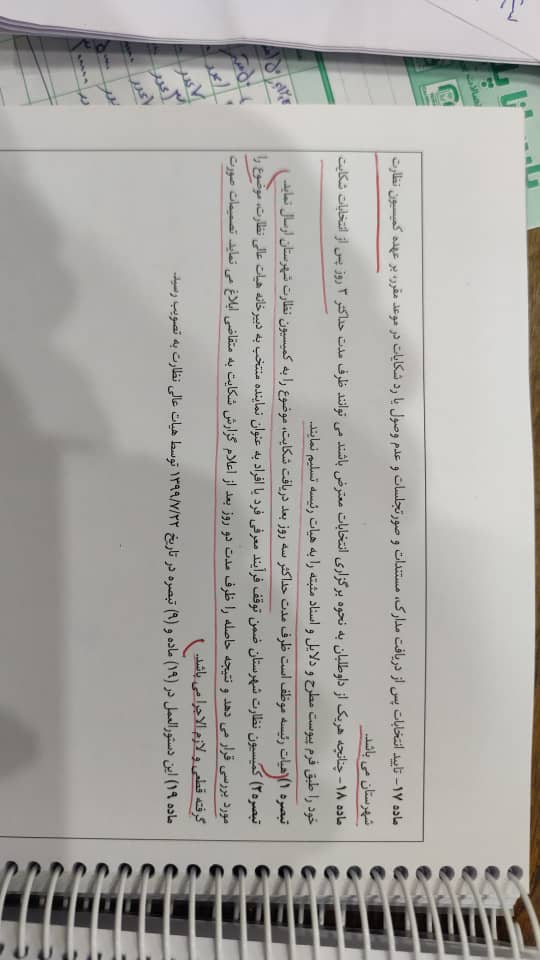 ماده ۱۷- تایید انتخابات پس از دریافت مدارک، مستندات و صورتجلسات و عدم وصول یا رد شکایات در موعد مقرر، بر عهده کمیسیون نظارت
شهرستان می باشد.
ماده ۱۸- چنانچه هریک از داوطلبان به نحوه برگزاری انتخابات معترض باشند می توانند ظرف مدت حداکثر ۳ روز پس از انتخابات شکایت
خود را طبق فرم پیوست مطرح و دلایل و اسناد مثبته را به هیات رئیسه تسلیم نمایند.
تبصره ۱) هیات رئیسه موظف است ظرف مدت حداکثر سه روز بعد دریافت شکایت، موضوع را به کمیسیون نظارت شهرستان ارسال نماید.
تبصره ۲) کمیسیون نظارت شهرستان ضمن توقف فرآیند معرفی فرد یا افراد به عنوان نماینده منتخب به دبیرخانه هیات عالی نظارت، موضوع را
مورد بررسی قرار می دهد و نتیجه حاصله را ظرف مدت دو روز بعد از اعلام گزارش شکایت به متقاضی ابلاغ می نماید. تصمیمات صورت
گرفته قطعی و لازم الاجرا می باشد.
ماده ۱۹) این دستورالعمل در (۱۹) ماده و (۹) تبصره در تاریخ ۱۳۹۹/۷/۲۲ توسط هیات عالی نظارت به تصویب رسید.